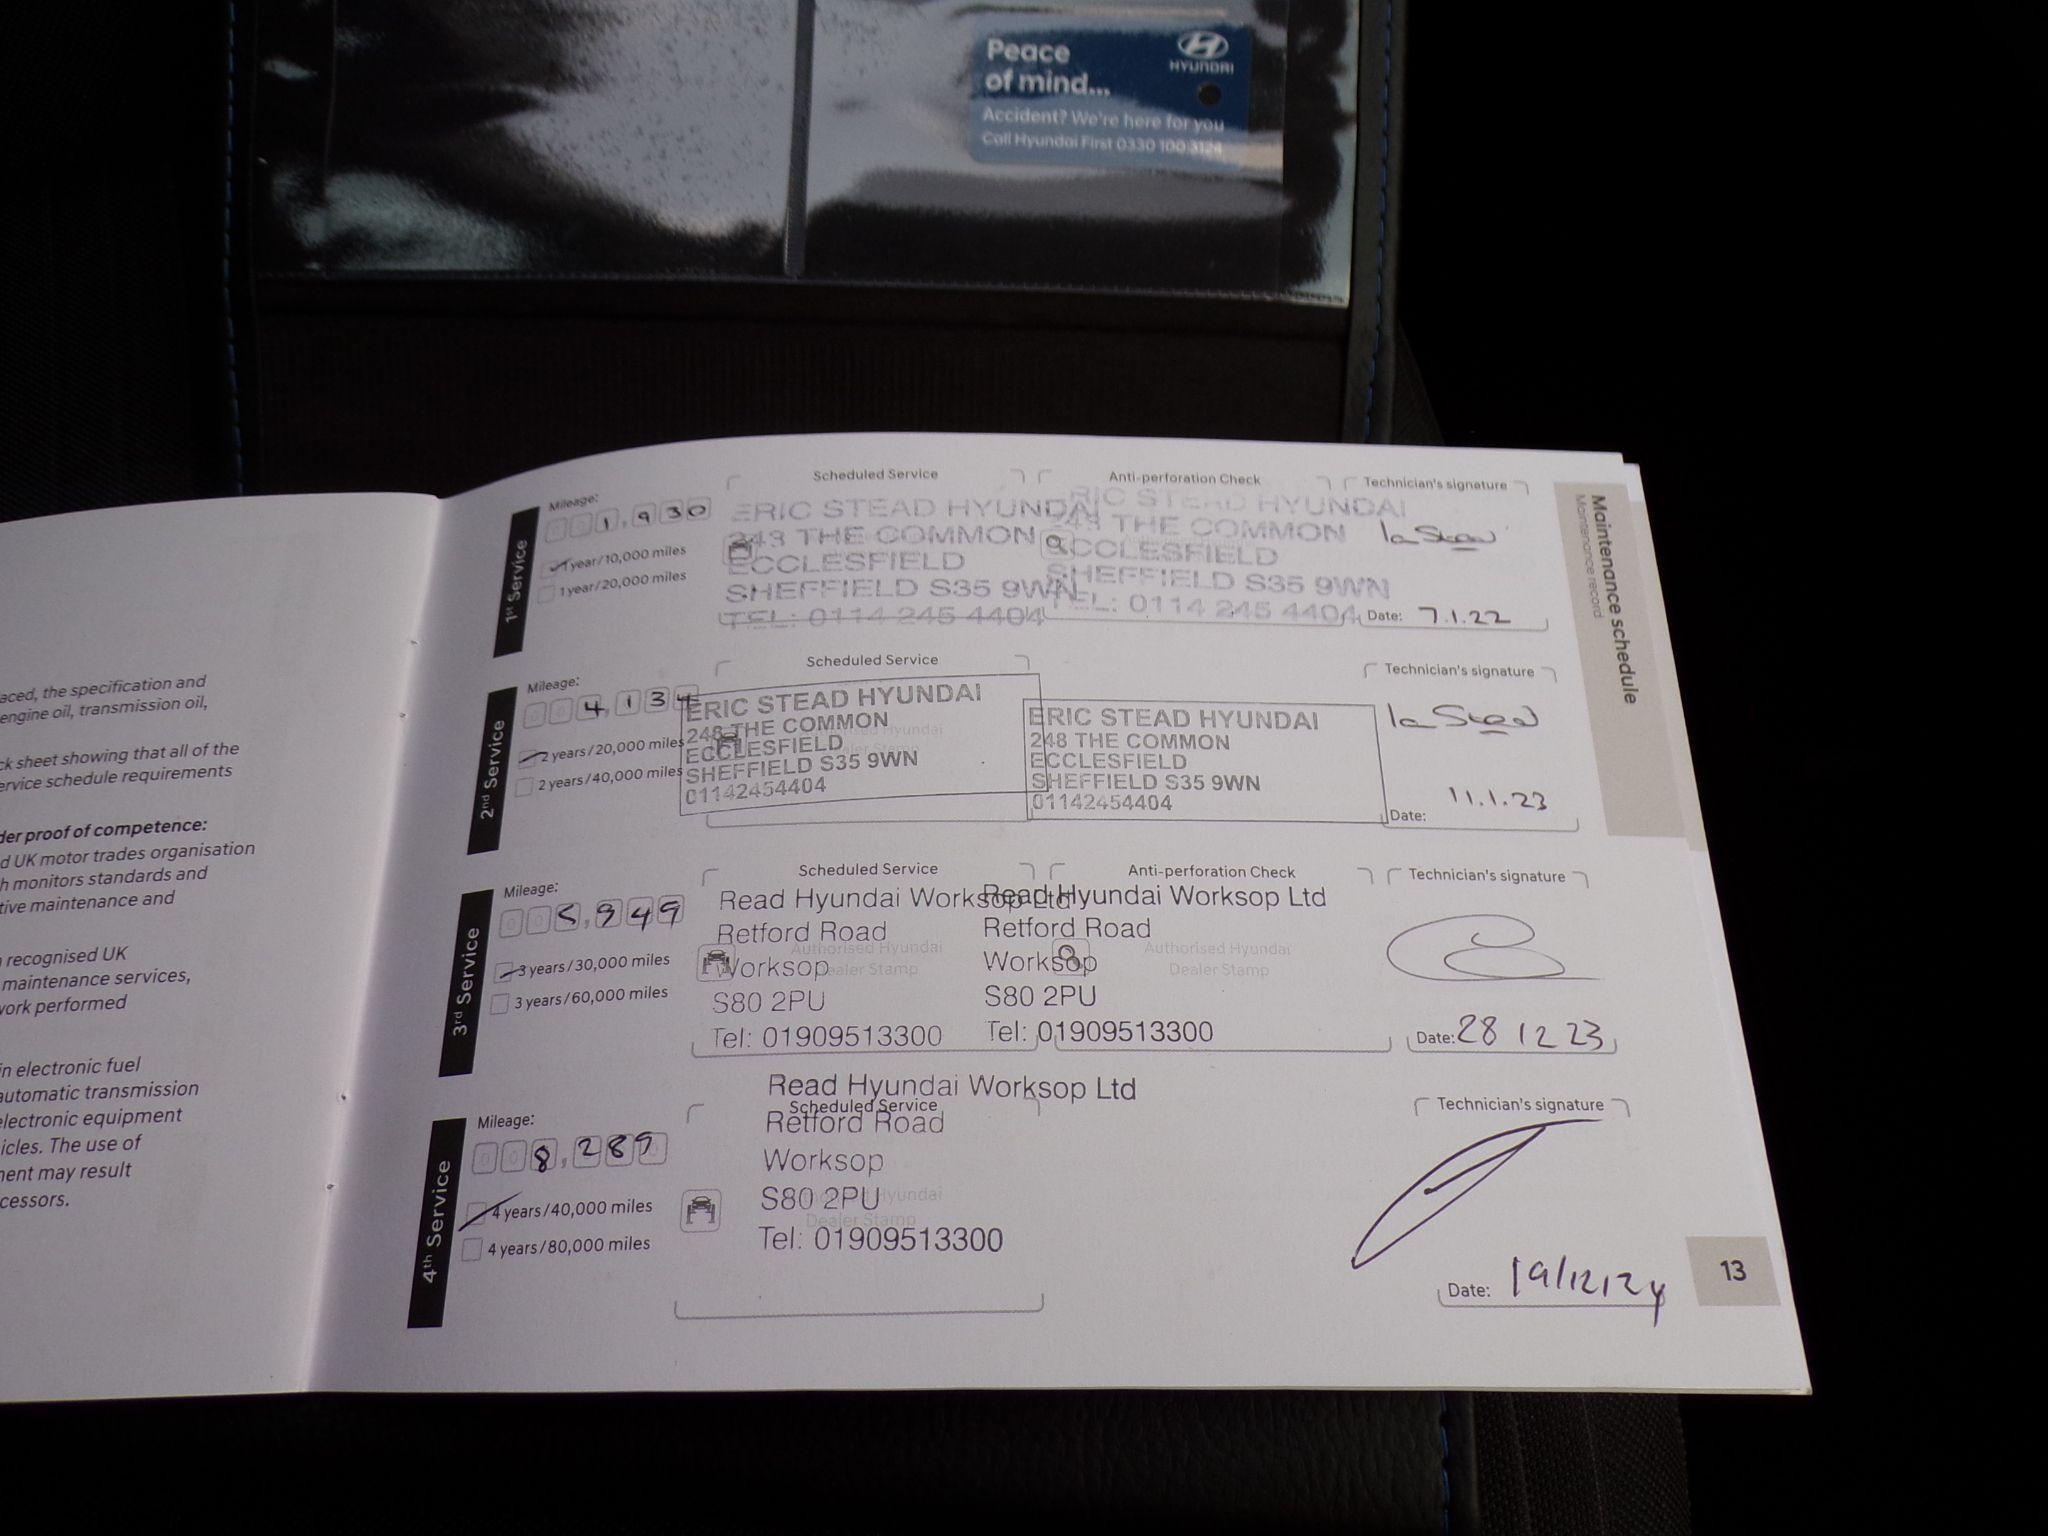 Peace
of mind...
HYUNDAI
Accident? We're here for you
Call Hyundai First 0330 100 3124
aced, the specification and
engine oil, transmission oil,
ck sheet showing that all of the
ervice schedule requirements
der proof of competence:
d UK motor trades organisation
h monitors standards and
tive maintenance and
n recognised UK
maintenance services,
work performed
in electronic fuel
automatic transmission
electronic equipment
icles. The use of
ment may result
cessors.
Maintenance schedule
Maintenance record
1st Service
Mileage:
001,930
1 year/10,000 miles
1 year/20,000 miles
Scheduled Service
ERIC STEAD HYUNDAI
248 THE COMMON
ECCLESFIELD
SHEFFIELD S35 9WN
TEL: 0114 245 4404
Anti-perforation Check
ERIC STEAD HYUNDAI
248 THE COMMON
ECCLESFIELD
SHEFFIELD S35 9WN
TEL: 0114 245 4404
Technician's signature
Date: 7.1.22
2nd Service
Mileage:
004,134
2 years/20,000 miles
2 years/40,000 miles
Scheduled Service
ERIC STEAD HYUNDAI
248 THE COMMON
ECCLESFIELD
SHEFFIELD S35 9WN
01142454404
ERIC STEAD HYUNDAI
248 THE COMMON
ECCLESFIELD
SHEFFIELD S35 9WN
01142454404
Technician's signature
Date: 11.1.23
3rd Service
Mileage:
005,949
3 years/30,000 miles
3 years/60,000 miles
Scheduled Service
Read Hyundai Worksop Ltd
Retford Road
Worksop
S80 2PU
Tel: 01909513300
Authorised Hyundai
Dealer Stamp
Anti-perforation Check
Read Hyundai Worksop Ltd
Retford Road
Worksop
S80 2PU
Tel: 01909513300
Authorised Hyundai
Dealer Stamp
Technician's signature
Date: 28 12 23
4th Service
Mileage:
008,289
4 years/40,000 miles
4 years/80,000 miles
Scheduled Service
Read Hyundai Worksop Ltd
Retford Road
Worksop
S80 2PU
Tel: 01909513300
Authorised Hyundai
Dealer Stamp
Technician's signature
Date: 19/12/24
13